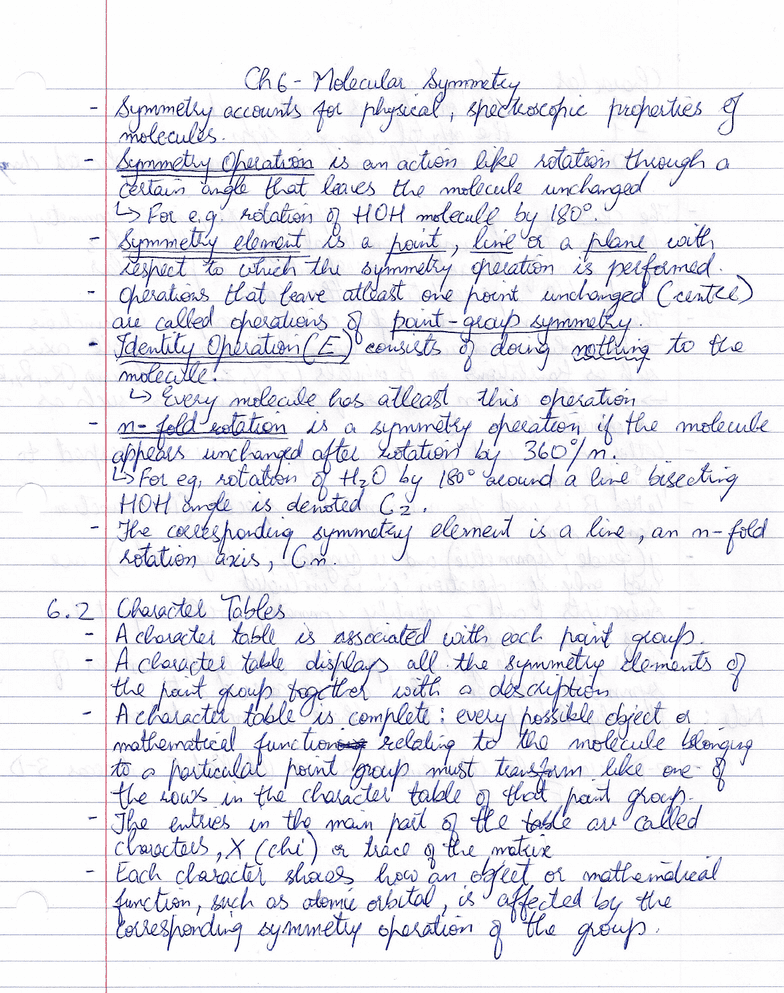 Ch 6 - Molecular Symmetry
- Symmetry accounts for physical, spectroscopic properties of
molecules.
- Symmetry Operation is an action like rotation through a
certain angle that leaves the molecule unchanged
↳ For e.g. rotation of HOH molecule by 180°.
- Symmetry element is a point, line or a plane with
respect to which the symmetry operation is performed.
- Operations that leave atleast one point unchanged (centre)
are called operations of point-group symmetry.
- Identity Operation (E) consists of doing nothing to the
molecule.
↳ Every molecule has atleast this operation
- n-fold rotation is a symmetry operation if the molecule
appears unchanged after rotation by 360°/n.
↳ For eg, rotation of H₂O by 180° around a line bisecting
HOH angle is denoted C₂.
- The corresponding symmetry element is a line, an n-fold
rotation axis, Cn.
6.2 Character Tables
- A character table is associated with each point group.
- A character table displays all the symmetry elements of
the point group together with a description
- A character table is complete: every possible object or
mathematical function relating to the molecule belonging
to a particular point group must transform like one of
the rows in the character table of that point group.
- The entries in the main part of the table are called
characters, X (chi) or trace of the matrix
- Each character shows how an object or mathematical
function, such as atomic orbital, is affected by the
corresponding symmetry operation of the group.